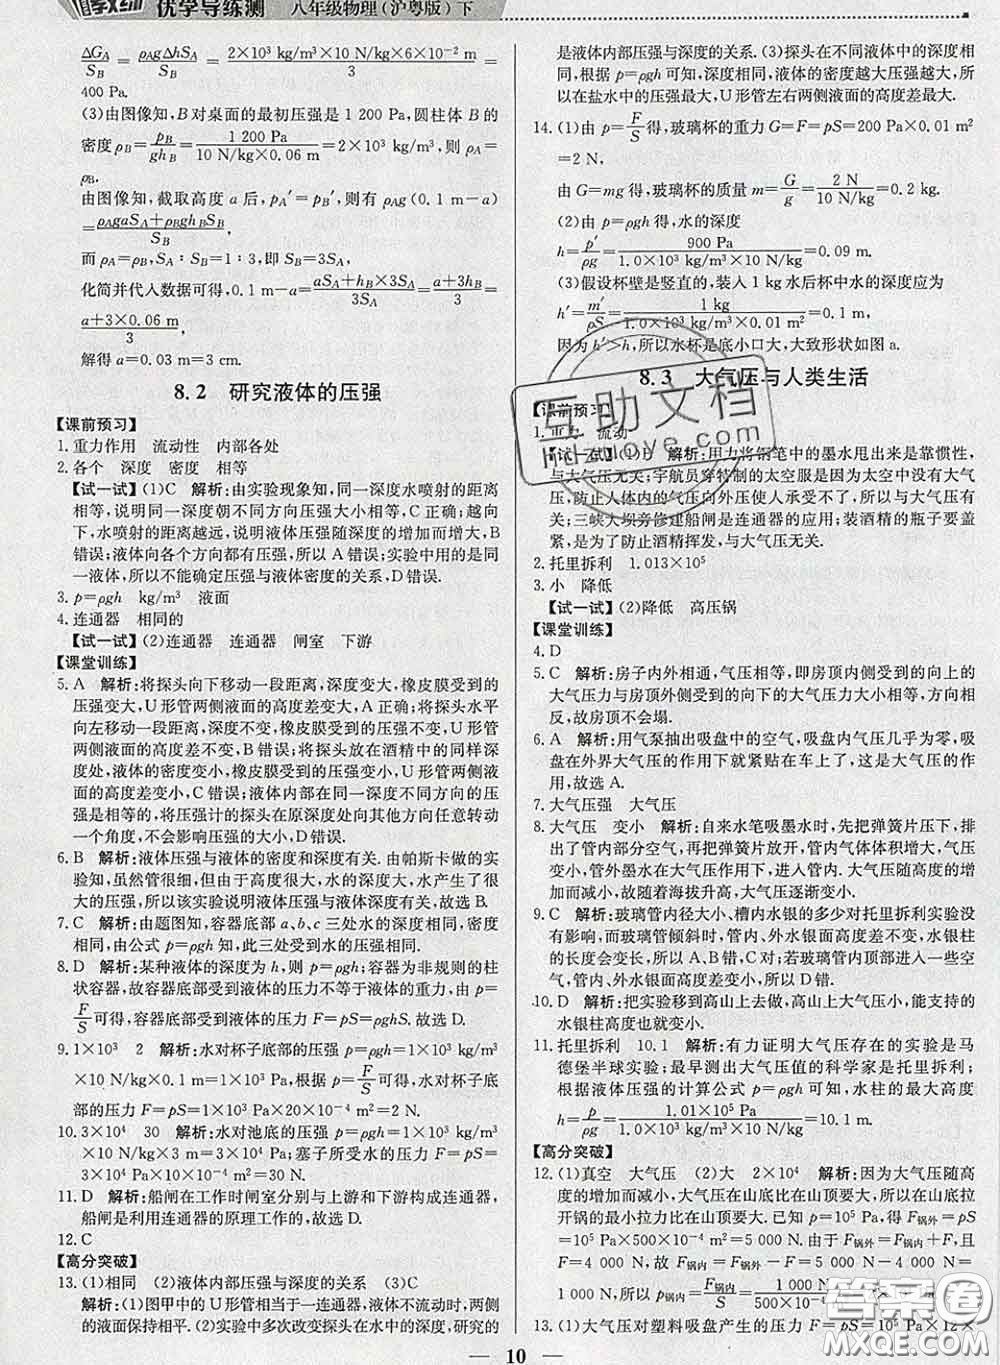 优学导练测 八年级物理(沪粤版)下
ΔG_A/S_B=ρ_A gΔhS_A/S_B=2×10³ kg/m³×10 N/kg×6×10⁻² m/3=
400 Pa.
(3)由图像知,B对桌面的最初压强是1 200 Pa,圆柱体B的
密度ρ_B=p_B/gh_B=1 200 Pa/10 N/kg×0.06 m=2×10³ kg/m³,则ρ_A=
ρ_B.
由图像知,截取高度a后,p_A′=p_B′,则有ρ_A g(0.1 m-a)
=ρ_A gaS_A+ρ_B gh_B S_B/S_B,
而ρ_A=ρ_B,S_A∶S_B=1∶3,即S_B=3S_A,
化简并代入数据可得,0.1 m-a=aS_A+h_B×3S_A/3S_A=a+3h_B/3=
a+3×0.06 m/3,
解得a=0.03 m=3 cm.
8.2 研究液体的压强
【课前预习】
1.重力作用 流动性 内部各处
2.各个 深度 密度 相等
【试一试】(1)C 解析:由实验现象知,同一深度水喷射的距离
相等,说明同一深度朝不同方向压强大小相等,C正确;越向
下,水喷射的距离越远,说明液体压强随深度的增加而增大,
B错误;液体向各个方向都有压强,所以A错误;实验中用的是同
一液体,所以不能确定压强与液体密度的关系,D错误.
3.p=ρgh kg/m³ 液面
4.连通器 相同的
【试一试】(2)连通器 连通器 闸室 下游
【课堂训练】
5.A 解析:将探头向下移动一段距离,深度变大,橡皮膜受到的
压强变大,U形管两侧液面的高度差变大,A正确;将探头水平
向左移动一段距离,深度不变,橡皮膜受到的压强不变,U形管
两侧液面的高度差不变,B错误;将探头放在酒精中的同样深
度处,液体的密度变小,橡皮膜受到的压强变小,U形管两侧液
面的高度差变小,C错误;液体内部在同一深度向不同方向的压
强是相等的,将压强计的探头在原深度处向其他方向任意转动
一个角度,不会影响压强的大小,D错误.
6.B 解析:液体压强与液体的密度和深度有关.由帕斯卡做的实
验知,虽然管很细,但由于高度很大,水产生了很大
的压强,所以该实验说明液体压强与液体深度有关,故选B.
7.C 解析:由题图知,容器底部a、b、c三处水的深度相同,密度
相同,由公式p=ρgh知,此三处受到水的压强相同.
8.D 解析:某种液体的深度为h,则压强p=ρgh;容器为非规则的柱
状容器,故容器底部受到液体的压力不等于液体的重力,由p=
F/S可得,容器底部受到液体的压力F=pS=ρghS.故选D.
9.1×10³ 2 解析:水对杯子底部的压强p=ρgh=1×10³ kg/m³
×10 N/kg×0.1 m=1×10³ Pa,根据p=F/S可得,水对杯子底
部的压力F=pS=1×10³ Pa×20×10⁻⁴ m²=2 N.
10.3×10⁴ 30 解析:水对池底的压强p=ρgh=1×10³ kg/m³×10
N/kg×3 m=3×10⁴ Pa;塞子所受水的压力F=pS=3×10⁴
Pa×10×10⁻⁴ m²=30 N.
11.D 解析:船闸在工作时闸室分别与上游和下游构成连通器,
船闸是利用连通器的原理工作的,故选D.
12.C
【高分突破】
13.(1)相同 (2)液体内部压强与深度的关系 (3)C
解析:(1)图甲中的U形管相当于一连通器,液体不流动时,两侧
的液面保持相平.(2)实验中多次改变探头在水中的深度,研究的
是液体内部压强与深度的关系.(3)探头在不同液体中的深度相
同,根据p=ρgh可知,深度相同,液体的密度越大压强越大,所
以在盐水中的压强最大,U形管左右两侧液面的高度差最大.
14.(1)由p=F/S得,玻璃杯的重力G=F=pS=200 Pa×0.01 m²
=2 N,
由G=mg得,玻璃杯的质量m=G/g=2 N/10 N/kg=0.2 kg.
(2)由p=ρgh得,水的深度
h=p′/ρg=900 Pa/1.0×10³ kg/m³×10 N/kg=0.09 m.
(3)假设杯壁是竖直的,装入1 kg水后杯中水的深度应为
h′=m′/ρS=1 kg/1.0×10³ kg/m³×0.01 m²=0.1 m,
因为h′>h,所以水杯是底小口大,大致形状如图a.
8.3 大气压与人类生活
【课前预习】
1.重力 流动
【试一试】(1)D 解析:用力将钢笔中的墨水甩出来是靠惯性,
与大气压无关;宇航员穿特制的太空服是因为太空中没有大气
压,防止人体内的气压向外压使人承受不了,与大气压无
关;三峡大坝旁修建船闸是连通器的应用;装酒精的瓶子要盖
紧,是为了防止酒精挥发,与大气压无关.
2.托里拆利 1.013×10⁵
3.小 降低
【试一试】(2)降低 高压锅
【课堂训练】
4.D
5.C 解析:房子内外相通,气压相等,即房顶内侧受到的向上的
大气压力与房顶外侧受到的向下的大气压力大小相等,方向相
反,故房顶不会被压垮.
6.A 解析:用气泵抽出吸盘中的空气,吸盘内气压几乎为零,吸
盘在外界大气压的作用下就紧贴在车上了,这是大气压的作
用,故选A.
7.大气压强 大气压
8.大气压 变小 解析:自来水笔吸墨水时,先把弹簧片压下,排出
管内部分空气,再把弹簧片放开,管内气体体积增大,气压
变小,墨水在大气压作用下,进入管内.大气压随海拔高度的升高而减
小,故随着海拔升高,大气压逐渐变小.
9.C 解析:玻璃管内径大小、槽内水银的多少对托里拆利实验没
有影响,而玻璃管倾斜时,管内、外水银面高度差不变,水银柱
长度变长,所以A、B错,C对;若玻璃管内误进入一些空气,
管内、外水银面高度差变小,所以D错.
10.D 解析:把实验移到高山上去做,高山上大气压小,能支持的
水银柱高度也就变小.
11.托里拆利 10.1 解析:有力证明大气压存在的实验是马
德堡半球实验,最早测出大气压值的科学家是托里拆利;
根据液体压强的计算公式p=ρgh可知,水柱的最大高度
h=p/ρg=1.01×10⁵ Pa/1.0×10³ kg/m³×10 N/kg=10.1 m.
【高分突破】
12.(1)真空 大气压 (2)大 2×10⁴ 解析:因为大气压随高
度的增加而减小,大气压在山底比在山顶要大,所以在山底拉
开锅的最小拉力比在山顶要大.已知p=10⁵ Pa,F锅外=pS
=10⁵ Pa×500×10⁻⁴ m²=5 000 N.由于F锅外=F锅内+F,且
F=4 000 N,代入得F锅内=F锅外-F=5 000 N-4 000 N=
1 000 N,所以p锅内=F锅内/S=1 000 N/500×10⁻⁴
13.(1)大气压对塑料吸盘产生的压力F=pS=1×10⁵ Pa×12×
10
互助文档
答案圈
MXQE.COM